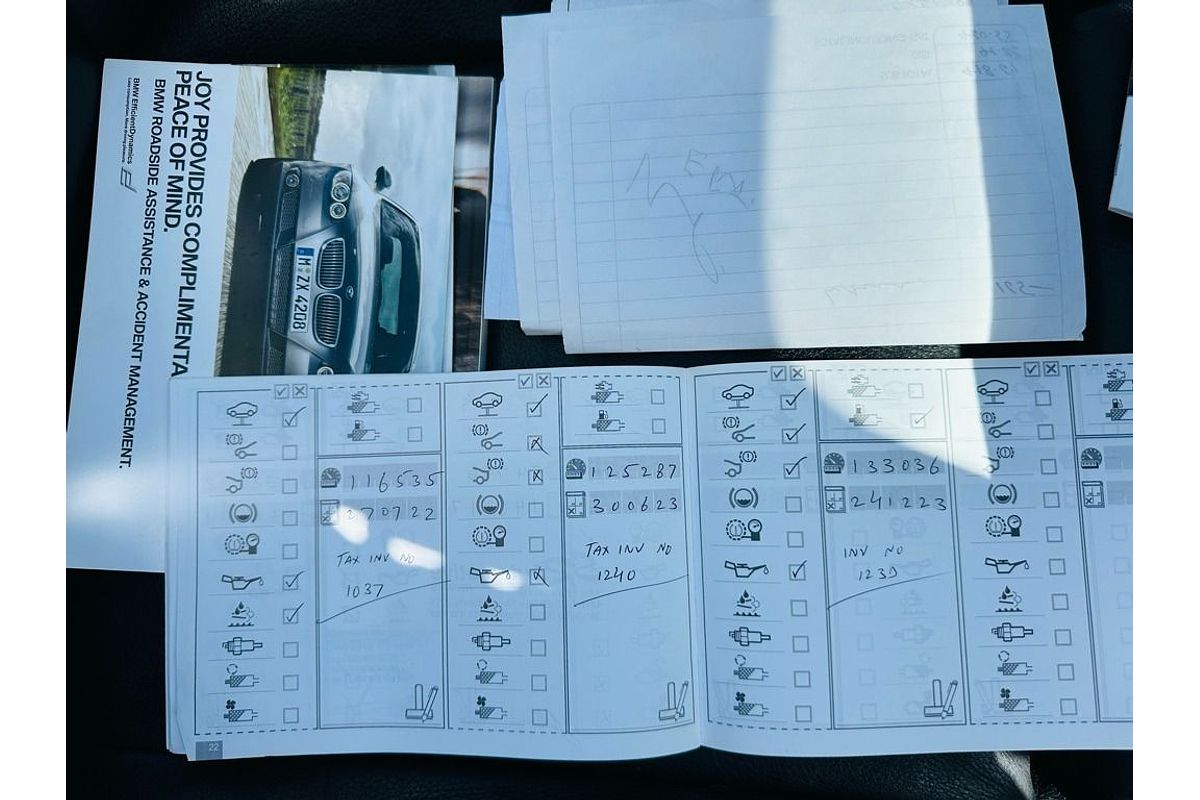 JOY PROVIDES COMPLIMENTA
PEACE OF MIND.
BMW ROADSIDE ASSISTANCE & ACCIDENT MANAGEMENT.
BMW EfficientDynamics
Less consumption. More driving pleasure.
M ZX 4208
116535
270722
TAX INV NO
1037
125287
300623
TAX INV NO
1240
133036
241223
INV NO
1239
22